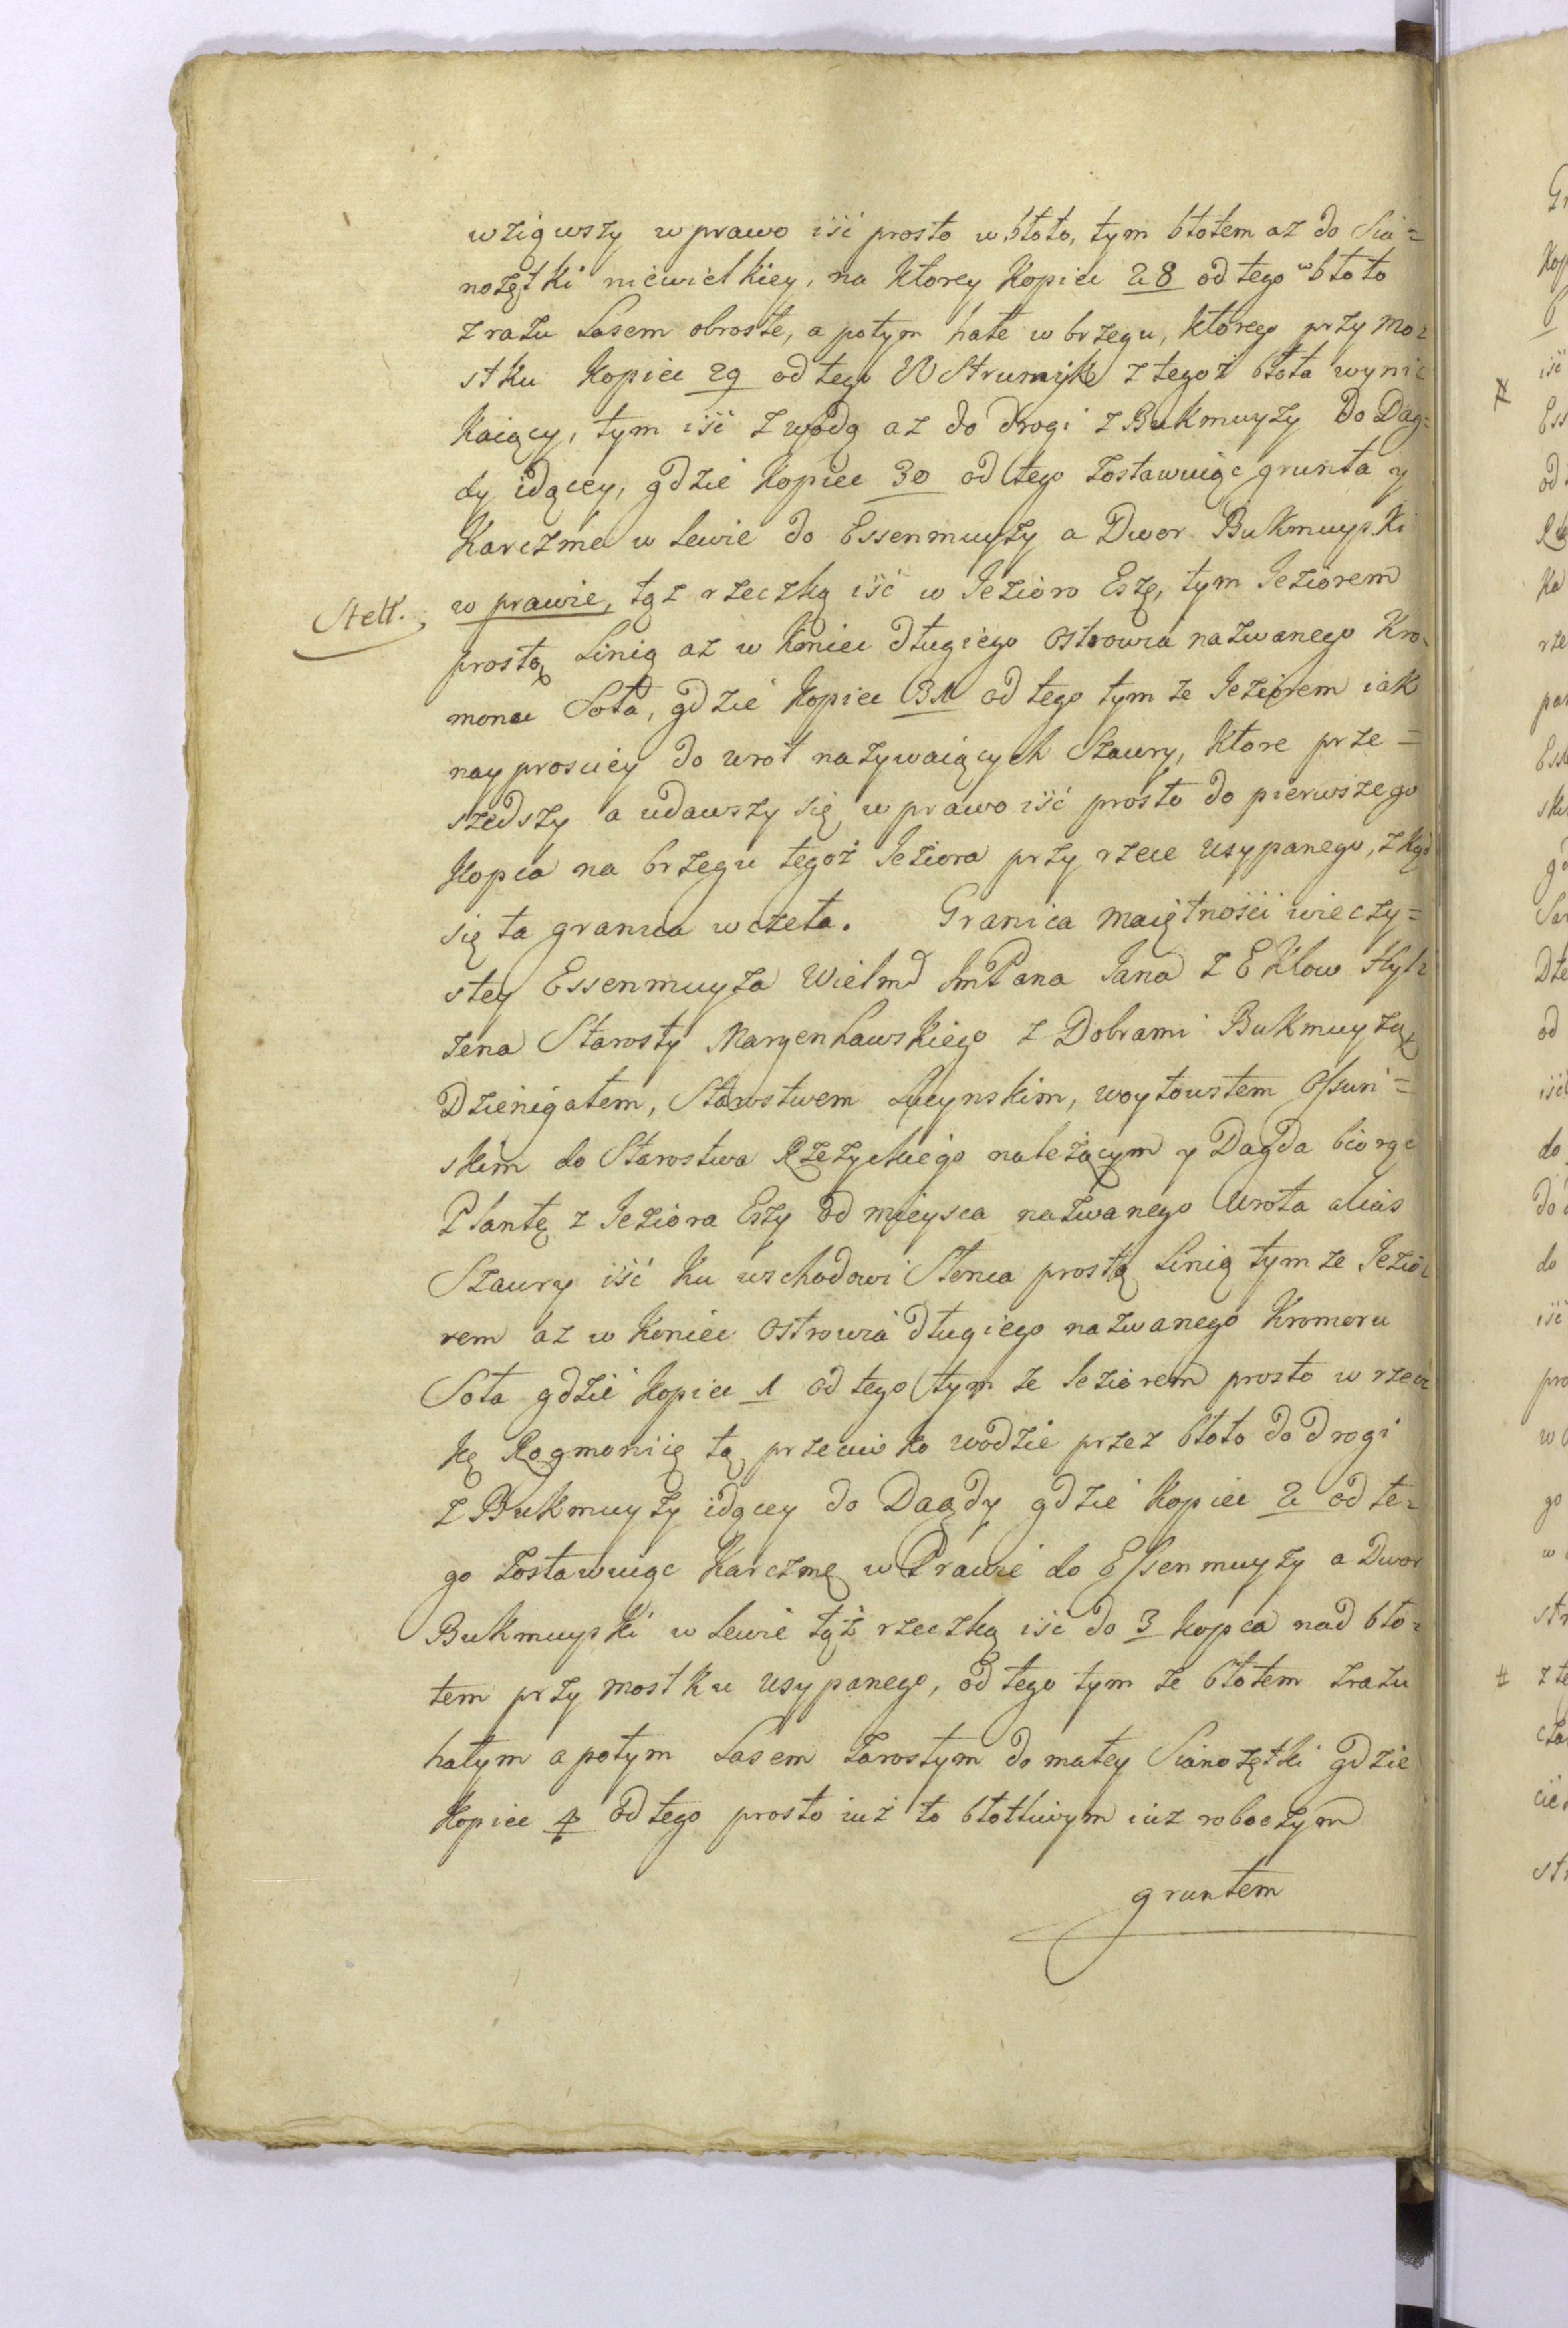 wziąwszy w prawo iść prosto w błoto, tym błotem az do Sia=
nozętki niewielkiey, na ktorey Kopiec 28 od tego w błoto
zrazu Lasem obrosłe, a potym hałe w brzegu, ktorego przy mo=
stku Kopiec 29 od tego W Strumyk z tegoż błota wyni=
kaiący, tym iść z wodą az do drogi z Bukmuyzy do Dag=
dy idącey, gdzie Kopiec 30 od tego zostawuiąc grunta y
Karczme w lewie do Essenmuyzy a Dwor Bukmuyski
Stett. w prawie, tąż rzeczką iść w Iezioro Eszę, tym Ieziorem
prostą Linią az w koniec długiego Ostrowia nazwanego Kro=
monu Sota, gdzie Kopiec 31 od tego tym ze Ieziorem iak
nayprosciey do wrot nazywaiących Szaury, ktore prze=
szedszy a udawszy się w prawo iść prosto do pierwszego
Kopca na brzegu tegoż Ieziora przy rzece usypanego, zkąd
się ta granica wczeła. Granica Maiętności wieczy=
stey Essenmuyza Wielmo ImPana Iana z Eklow Hyl=
zena Starosty Maryenhawskiego z Dobrami Bukmuyzą
Dzienigałem, Starostwem Lucynskim, woytowstem Ossuń=
skim do Starostwa Rzeżyckiego należącym y Dagda biorąc
Plantę z Ieziora Eszy od mieysca nazwanego Wrota alias
Szaury iść ku wschodowi Słonca prostą Linią tym ze Iezio=
rem az w koniec Ostrowia długiego nazwanego Kromonu
Sota gdzie Kopiec 1 od tego tym ze Ieziorem prosto w rzecz
kę Rogmonię tą przeciwko wodzie przez błoto do drogi
z Bukmuyzy idącey do Dagdy gdzie Kopiec 2 od te=
go zostawuiąc Karczmę w Prawie do Essenmuyzy a Dwor
Bukmuyski w lewie tąż rzeczką iść do 3 kopca nad bło=
tem przy mostku usypanego, od tego tym ze błotem zrazu
hałym a potym Lasem zarosłym do małey Sianozętki gdzie
Kopiec 4 od tego prosto iuż to błotliwym iuz roboczym
gruntem